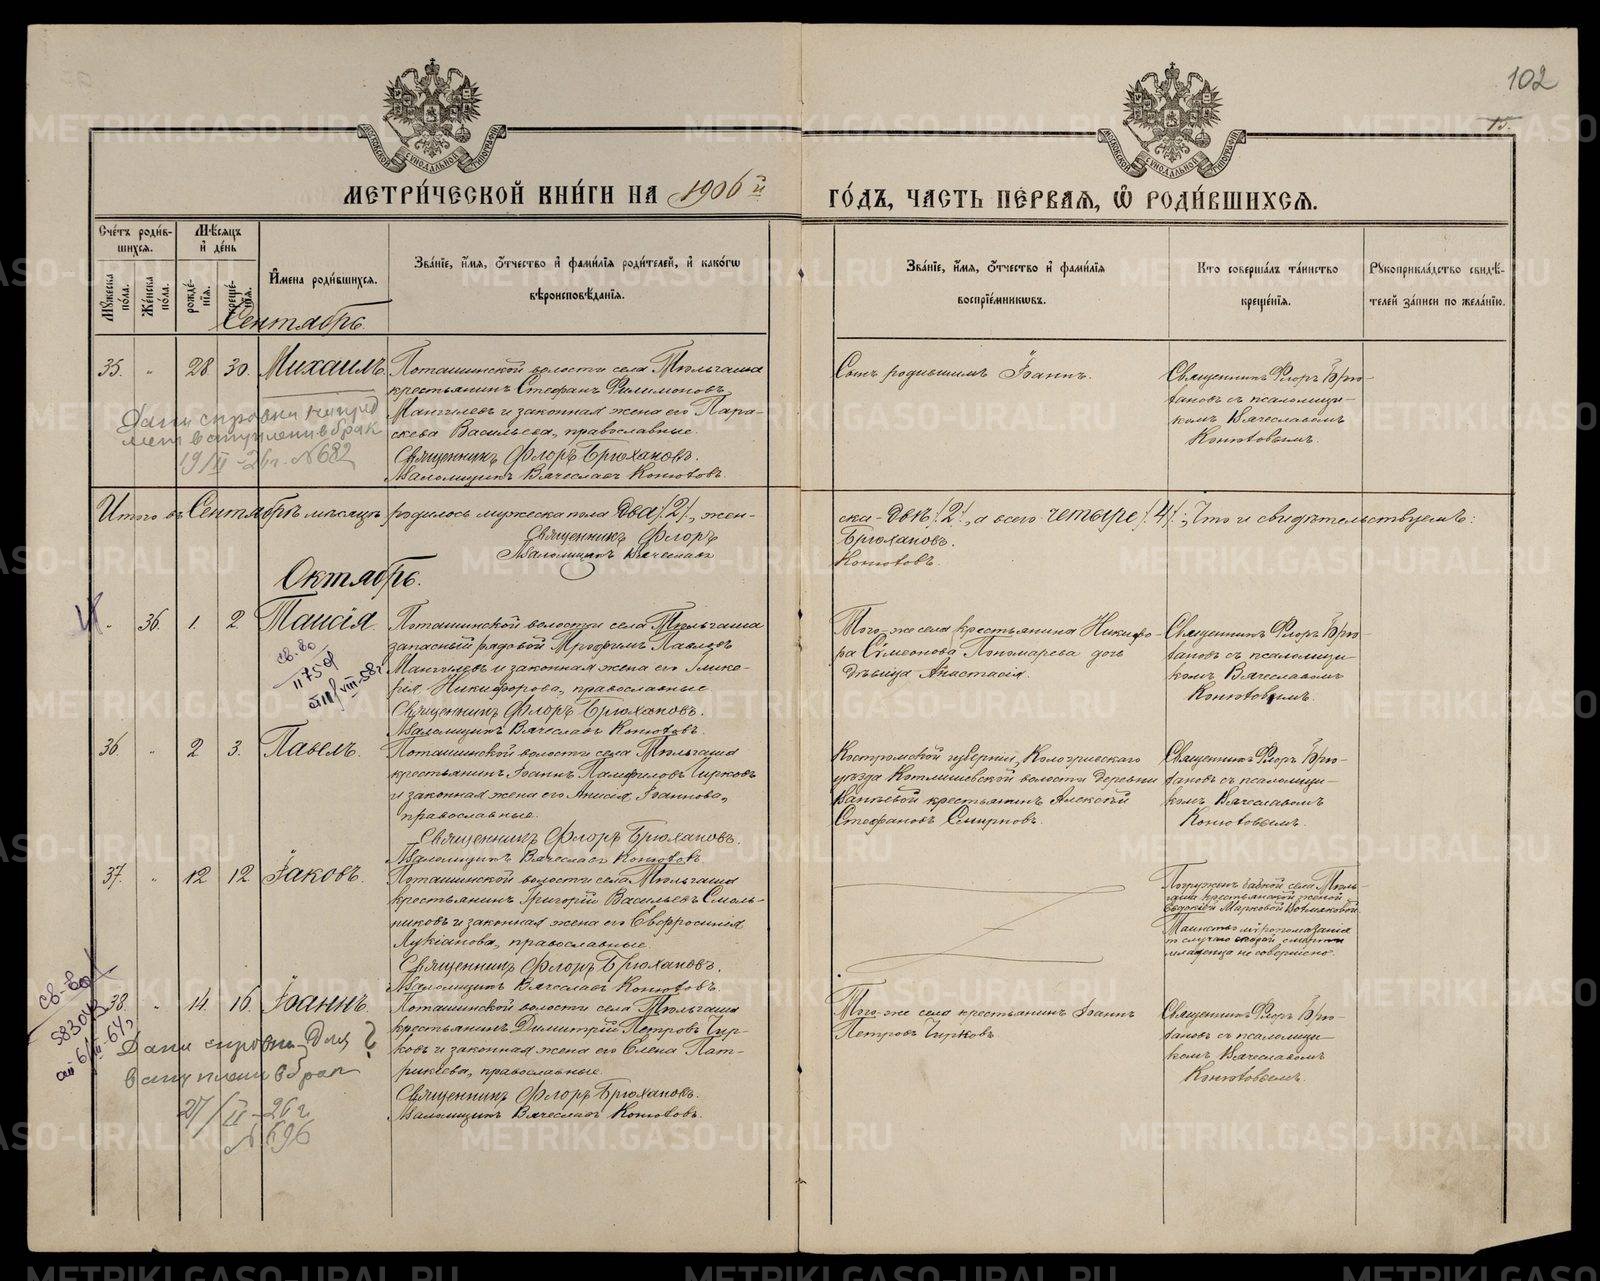 102
15.
МЕТРИ́ЧЕСКОЙ КНИ́ГИ НА 1906 й ГО́ДЪ, ЧАСТЬ ПЕ́РВАѦ, Ѽ РОДИ́ВШИХСѦ.
Сче́тъ роди́в-
шихсѧ.
Мꙋ́жеска по́ла.
Же́нска по́ла.
Мѣ́сѧцъ
и҆ де́нь
рожде́-
нїѧ.
креще́-
нїѧ.
И҆мена роди́вшихсѧ.
Зва́нїе, и҆́мѧ, ѻ҆́тчество и҆ фами́лїѧ роди́телей, и҆ како́гѡ
вѣроисповѣ́данїѧ.
Зва́нїе, и҆́мѧ, ѻ҆́тчество и҆ фами́лїѧ
воспрїе́мникѡвъ.
Кто̀ соверша́лъ та́инство
креще́нїѧ.
Рꙋкоприкла́дство свидѣ́-
телей за́писи по жела́нїю.
Сентябрь.
35. „ 28 30. Михаилъ.
Поташинской волости села Тюльгаша
крестьянинъ Стефанъ Филимоновъ
Мангилевъ и законная жена его Пара-
скева Васильева, православные.
Священникъ Флоръ Брюхановъ.
Псаломщикъ Вячеславъ Конютовъ.
Сынъ родившимъ Іоаннъ.
Священникъ Флоръ Брю-
хановъ съ псаломщи-
комъ Вячеславомъ
Конютовымъ.
Дана справка на пред
мет вступлении в брак
19/II-26 г. №682
Итого въ Сентябрѣ мѣсяцѣ родилось мужеска пола два /2/, жен-
ска - двѣ /2/, а всего четыре /4/; Что и свидѣтельствуемъ:
Священникъ Флоръ Брюхановъ.
Псаломщикъ Вячеславъ Конютовъ.
Октябрь.
„ 36. 1. 2. Таисія.
Поташинской волости села Тюльгаша
запасный рядовой Трофимъ Павловъ
Мангилевъ и законная жена его Глике-
рія Никифорова, православные
Священникъ Флоръ Брюхановъ.
Псаломщикъ Вячеславъ Конютовъ.
Того-же села крестьянина Никифо-
ра Сѵмеонова Пономарева дочь
дѣвица Анастасія.
Священникъ Флоръ Брю-
хановъ съ псаломщи-
комъ Вячеславомъ
Конютовымъ.
св-во
36 „ 2 3. Павелъ.
Поташинской волости села Тюльгаша
крестьянинъ Іоаннъ Памфиловъ Чирковъ
и законная жена его Анисія Іоаннова,
православные.
Священникъ Флоръ Брюхановъ.
Псаломщикъ Вячеславъ Конютовъ.
Костромской губерніи, Кологривскаго
уѣзда Котлишевской волости деревни
крестьянинъ Алексѣй
Стефановъ Смирновъ.
Священникъ Флоръ Брю-
хановъ съ псаломщи-
комъ Вячеславомъ
Конютовымъ.
37. „ 12 12 Іаковъ.
Поташинской волости села Тюльгаша
крестьянинъ Григорій Васильевъ Смоль-
никовъ и законная жена его Евфросинія
Лукіанова, православные.
Священникъ Флоръ Брюхановъ.
Псаломщикъ Вячеславъ Конютовъ.
Погруженъ бабкой села Тюль-
гаша крестьянской женой
Евдокіей Марковой Вотляковой
Таинство мѵропомазанія
по случаю скорой смерти
младенца не совершено.
38. „ 14. 16. Іоаннъ.
Поташинской волости села Тюльгаша
крестьянинъ Димитрій Петровъ Чир-
ковъ и законная жена его Елена Пат-
рикіева, православные.
Священникъ Флоръ Брюхановъ.
Псаломщикъ Вячеславъ Конютовъ.
Того-же села крестьянинъ Іоаннъ
Петровъ Чирковъ
Священникъ Флоръ Брю-
хановъ съ псаломщи-
комъ Вячеславомъ
Конютовымъ.
св-во
Дана справка для
вступления в брак
27/II-26 г.
№ 696
METRIKI.GASO-URAL.RU